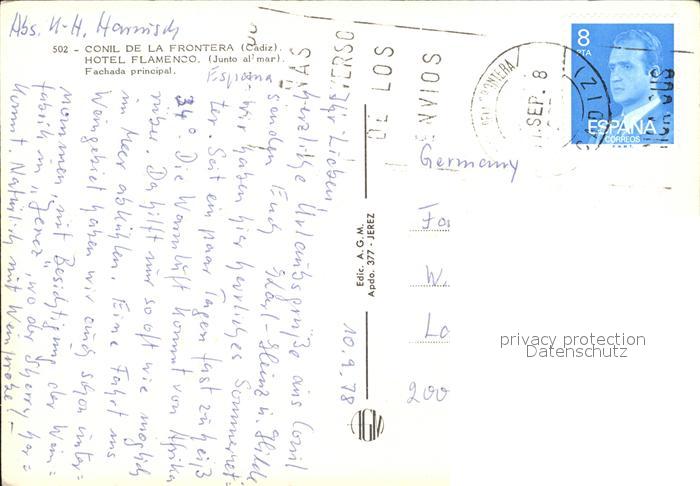 Abs. K-H. Harnisch
502 - CONIL DE LA FRONTERA (Cádiz).
HOTEL FLAMENCO. (Junto al mar).
Fachada principal.
España
Ihr Lieben!
herzliche Urlaubsgrüße aus Conil
senden Euch Karl-Heinz u. Hilde
wir haben hier herrliches Sommerwet=
ter. Seit ein paar Tagen fast zu heiß
34° Die Warmluft kommt von Afrika
rüber. Da hilft nur so oft wie möglich
im Meer abkühlen. Eine Fahrt ins
Weingebiet haben wir auch schon unter=
nommen, mit Besichtigung der Wein=
fabrik in "Jerez", wo der Sherry her=
kommt. Natürlich mit Weinprobe! -
10.9.78
Edic. A. G. M.
Apdo. 377 - JEREZ
8
PTA
ESPAÑA
CORREOS
F.N.M.T.
SEP. 8
CADIZ
DE LOS
ENVIOS
Germany
W.
200
privacy protection
Datenschutz